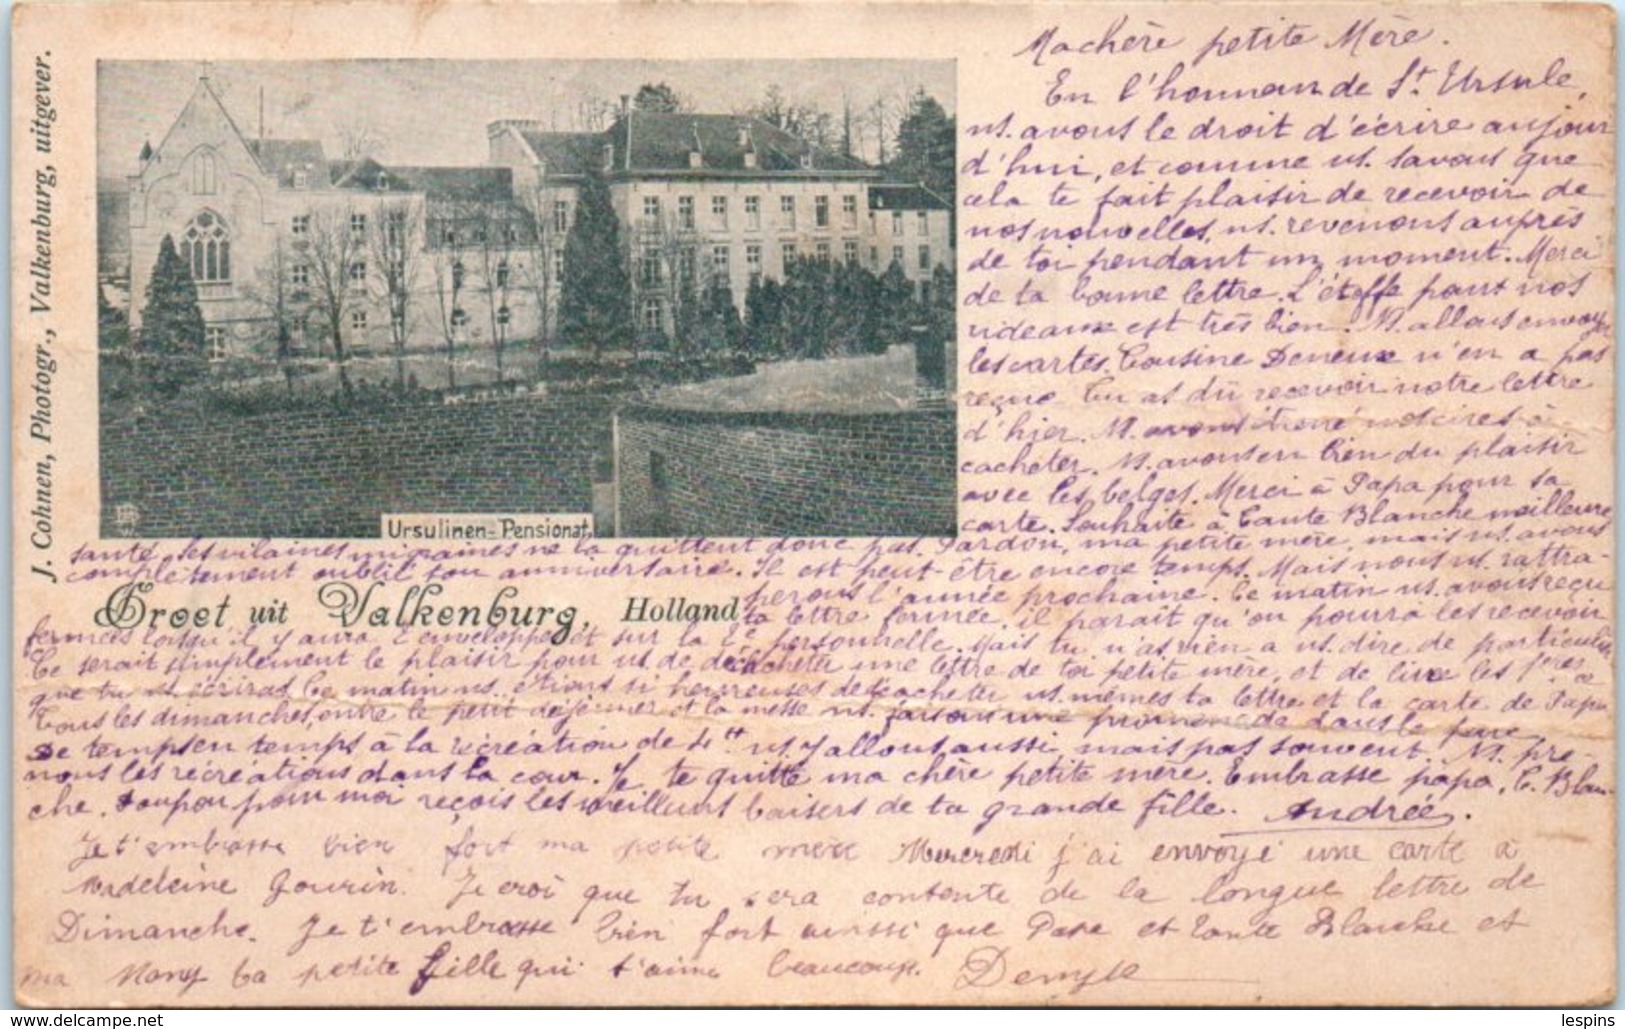 J. Cohnen, Photogr., Valkenburg, uitgever.
Ursulinen-Pensionat.
Groet uit Valkenburg, Holland
Ma chère petite Mère.
En l'honneur de St. Ursule,
ns. avons le droit d'écrire aujour
d'hui, et comme ns. savons que
cela te fait plaisir de recevoir de
nos nouvelles, ns. revenons auprès
de toi pendant un moment. Merci
de ta bonne lettre. L'étoffe pour nos
rideaux est très bien. Ns. allons envoyer
les cartes. Cousine Deneux n'en a pas
reçue. Tu as dû recevoir notre lettre
d'hier. Ns. avons à
cacheter. Ns. avons eu bien du plaisir
avec les belges. Merci à Papa pour sa
carte. Souhaite à Tante Blanche meilleure
santé, ses vilaines migraines ne la quittent donc pas. Pardon, ma petite mère, mais ns. avons
complètement oublié ton anniversaire. Il est peut-être encore temps. Mais nous ns. rattra-
perons l'année prochaine. Ce matin ns. avons reçu
ta lettre fermée, il parait qu'on pourra les recevoir
fermées lorsqu'il y aura 2 enveloppes et sur la 2e personnelle. Mais tu n'as rien a ns. dire de particulier
Ce serait simplement le plaisir pour ns. de décacheter une lettre de toi petite mère, et de lire les 1res ce
que tu ns. écriras. Ce matin ns. étions si heureuses de décacheter ns. mêmes ta lettre et la carte de Papa
Tous les dimanches, entre le petit déjeuner et la messe ns. faisons une promenade dans le parc
De temps en temps à la récréation de 4 ns. y allons aussi, mais pas souvent. Ns. pre-
nons les récréations dans la cour. Je te quitte ma chère petite mère. Embrasse papa, T. Blan-
che. Toupou pour moi reçois les meilleurs baisers de ta grande fille. Andrée.
Je t'embrasse bien fort ma petite mère Mercredi j'ai envoyé une carte à
Madeleine Gourin. Je croi que tu sera contente de la longue lettre de
Dimanche. Je t'embrasse bien fort ainssi que Papa et Tante Blanche et
ma Nany ta petite fille qui t'aime beaucoup. Denyse
lespins